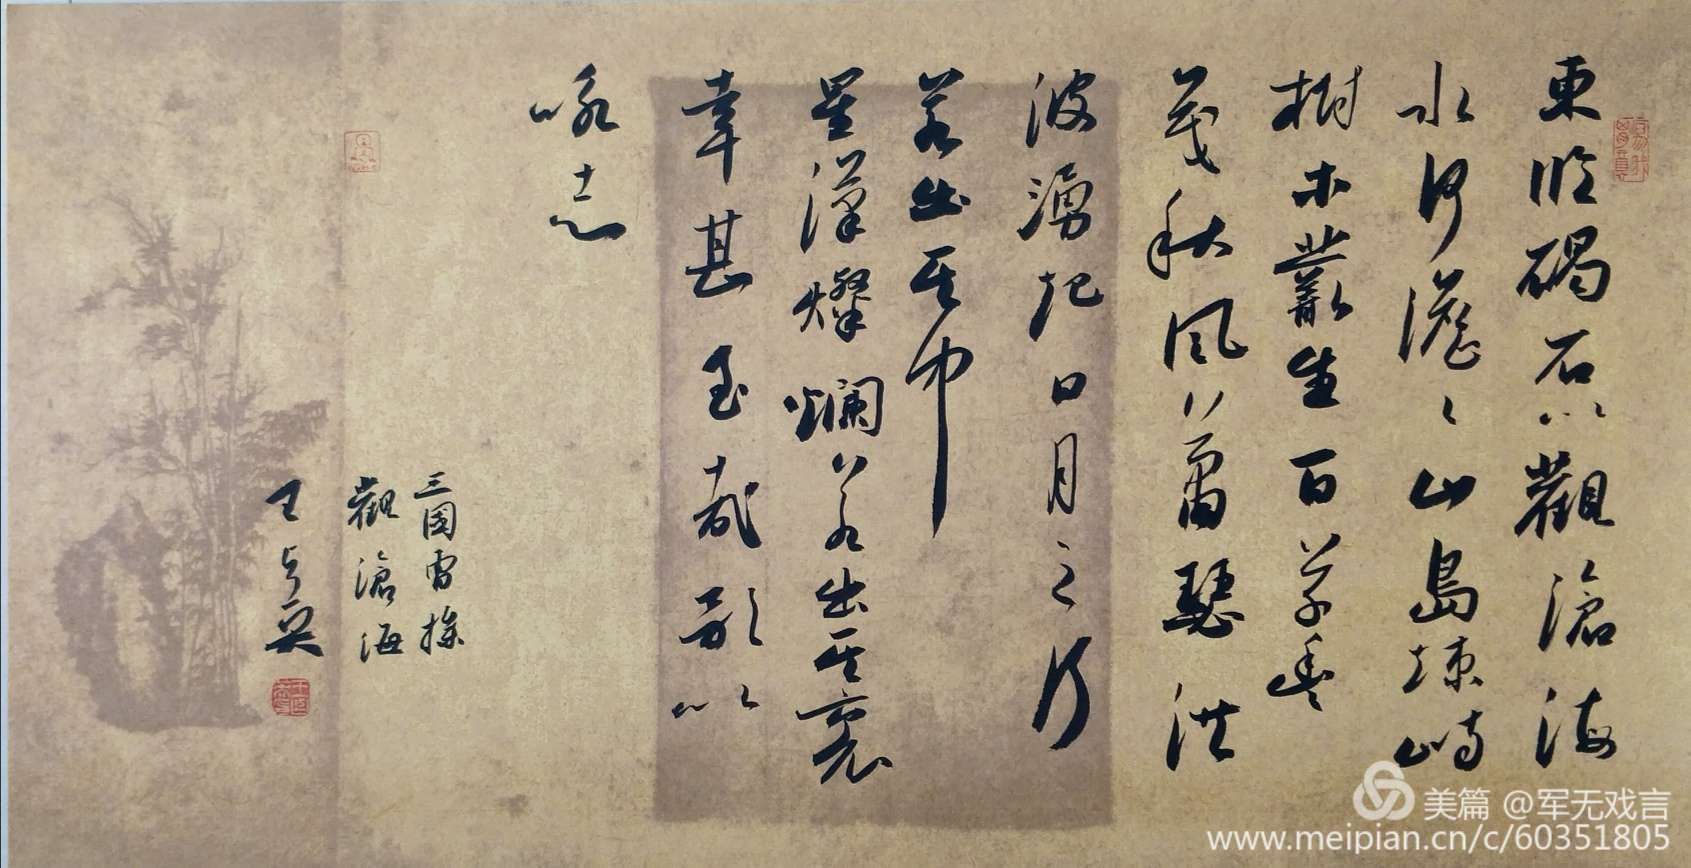 東臨碣石以觀滄海
水何澹々山島竦峙
樹木叢生百草豊
茂秋風蕭瑟洪
波湧起日月之行
若出其中
星漢燦爛若出其裏
幸甚至哉歌以
咏志
三國曹操
觀滄海
王
美篇 @军无戏言
www.meipian.cn/c/60351805